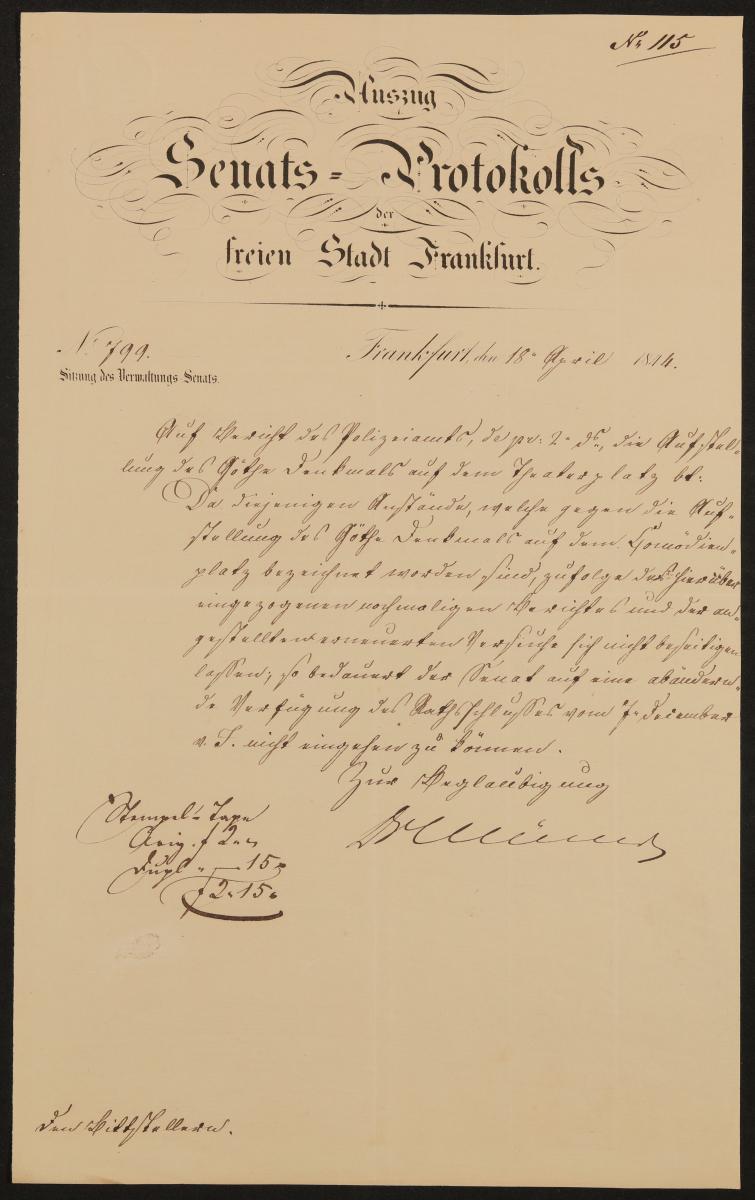 Nr 115
Auszug
Senats=Protokolls
der
freien Stadt Frankfurt.
No. 799.
Frankfurt, den 18n April 1844.
Sitzung des Verwaltungs-Senats.
Auf Bericht des Polizeiamts, de pr: 2n ds, die Aufstel-
lung des Göthe Denkmals auf dem Theaterplatz bt:
Da diejenigen Anstände, welche gegen die Auf-
stellung des Göthe Denkmals auf dem Comödien-
platz bezeichnet worden sind, zufolge des hierüber
eingezogenen nochmaligen Berichtes und der an-
gestellten erneuerten Versuche sich nicht beseitigen
lassen; so bedauert der Senat auf eine abändern-
de Verfügung des Rathsschlusses vom 7n December
v. J. nicht eingehen zu können.
Zur Beglaubigung
Stempel-Taxe
Orig. f 2 "
Dupl " — 15 "
f 2 " 15 "
Den Bittstellern.